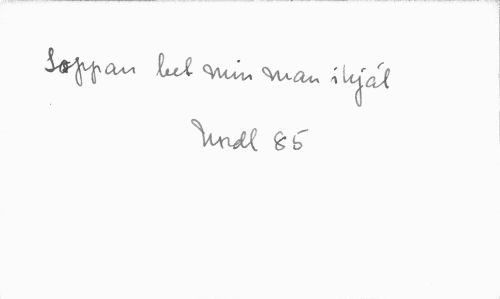 Loppan bet min man ihjäl
Undl 85